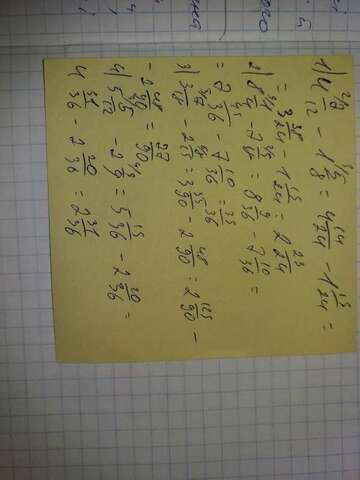 1) 4 7/12 - 1 5/8 = 4 14/24 - 1 15/24 =
= 3 38/24 - 1 15/24 = 2 23/24
2) 8 1/4 - 7 5/18 = 8 9/36 - 7 10/36 =
= 7 45/36 - 7 10/36 = 35/36
3) 3 7/18 - 2 8/15 = 3 35/90 - 2 48/90 = 2 125/90 -
- 2 48/90 = 77/90
4) 5 5/12 - 2 5/9 = 5 15/36 - 2 20/36 =
4 51/36 - 2 20/36 = 2 31/36